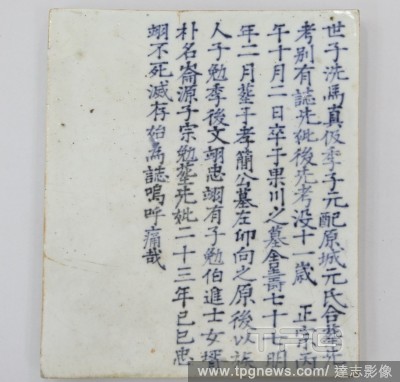 世子洗馬真佖季子元配原城元氏合葬先
考別有誌先妣後先考没十一歲 正宗丙
午十月二日卒于果川之墓舍壽七十七明
年二月葬于孝簡公墓左卯向之原後以族
人子勉季後文翊忠翊有子勉伯進士女壻
朴名崙源子宗勉葬先妣二十三年己巳忠
翊不死滅存始為誌嗚呼痛哉
TPG
TPG www.tpgnews.com 達志影像